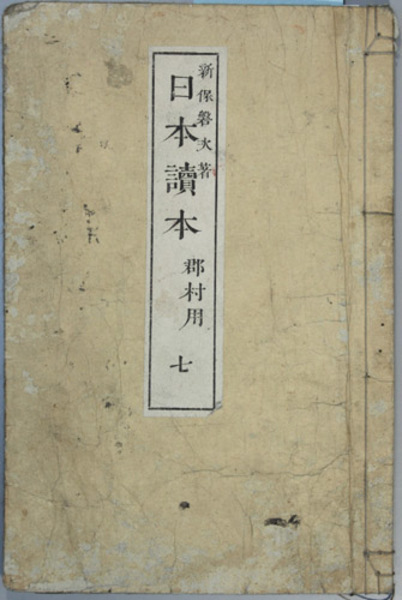 新保磐次著
日本讀本
郡村用
七